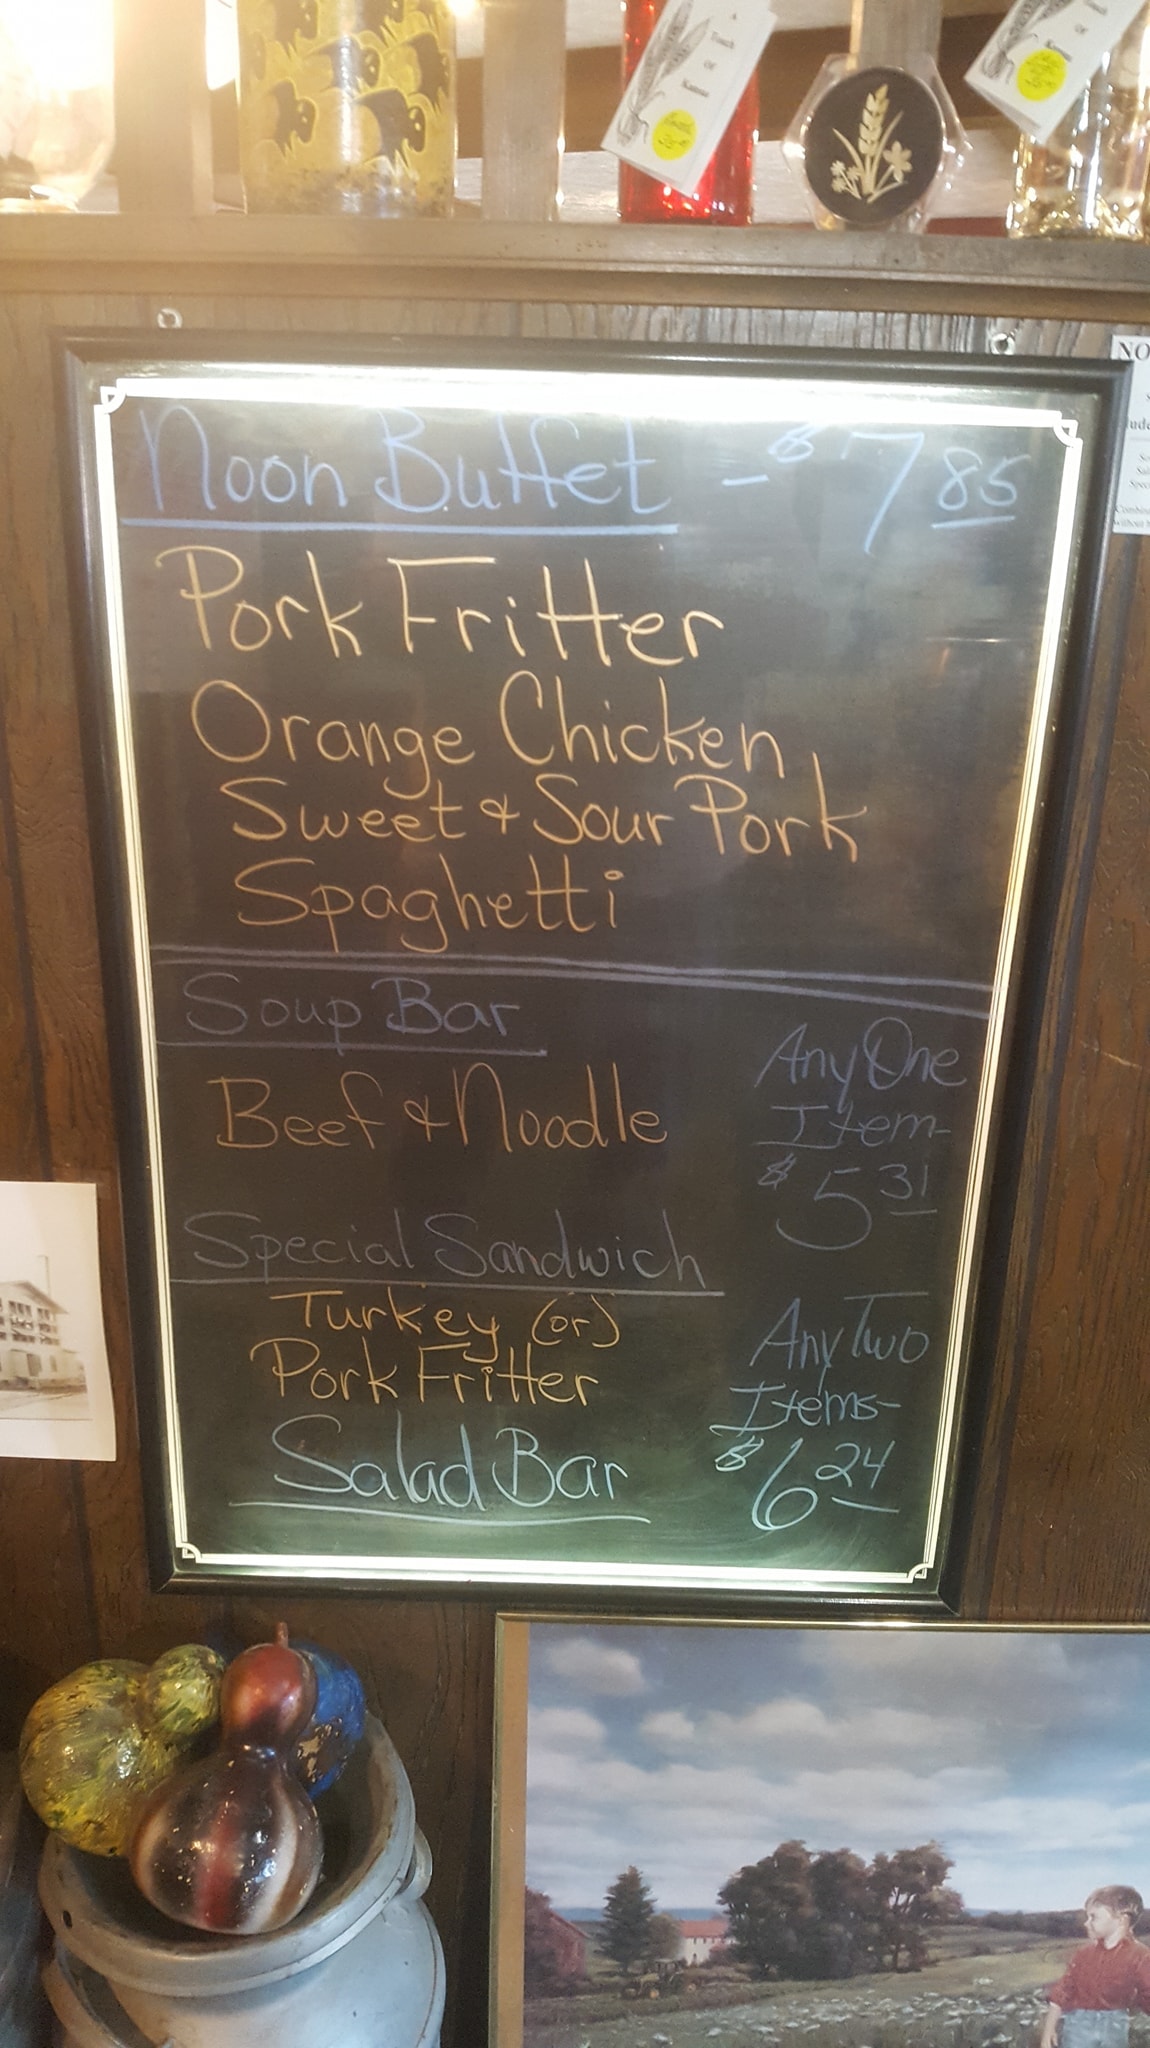 Noon Buffet - $7 85
Pork Fritter
Orange Chicken
Sweet & Sour Pork
Spaghetti
Soup Bar
Beef & Noodle
Any One
Item-
$5 31
Special Sandwich
Turkey (or)
Pork Fritter
Salad Bar
Any Two
Items-
$6 24
NO